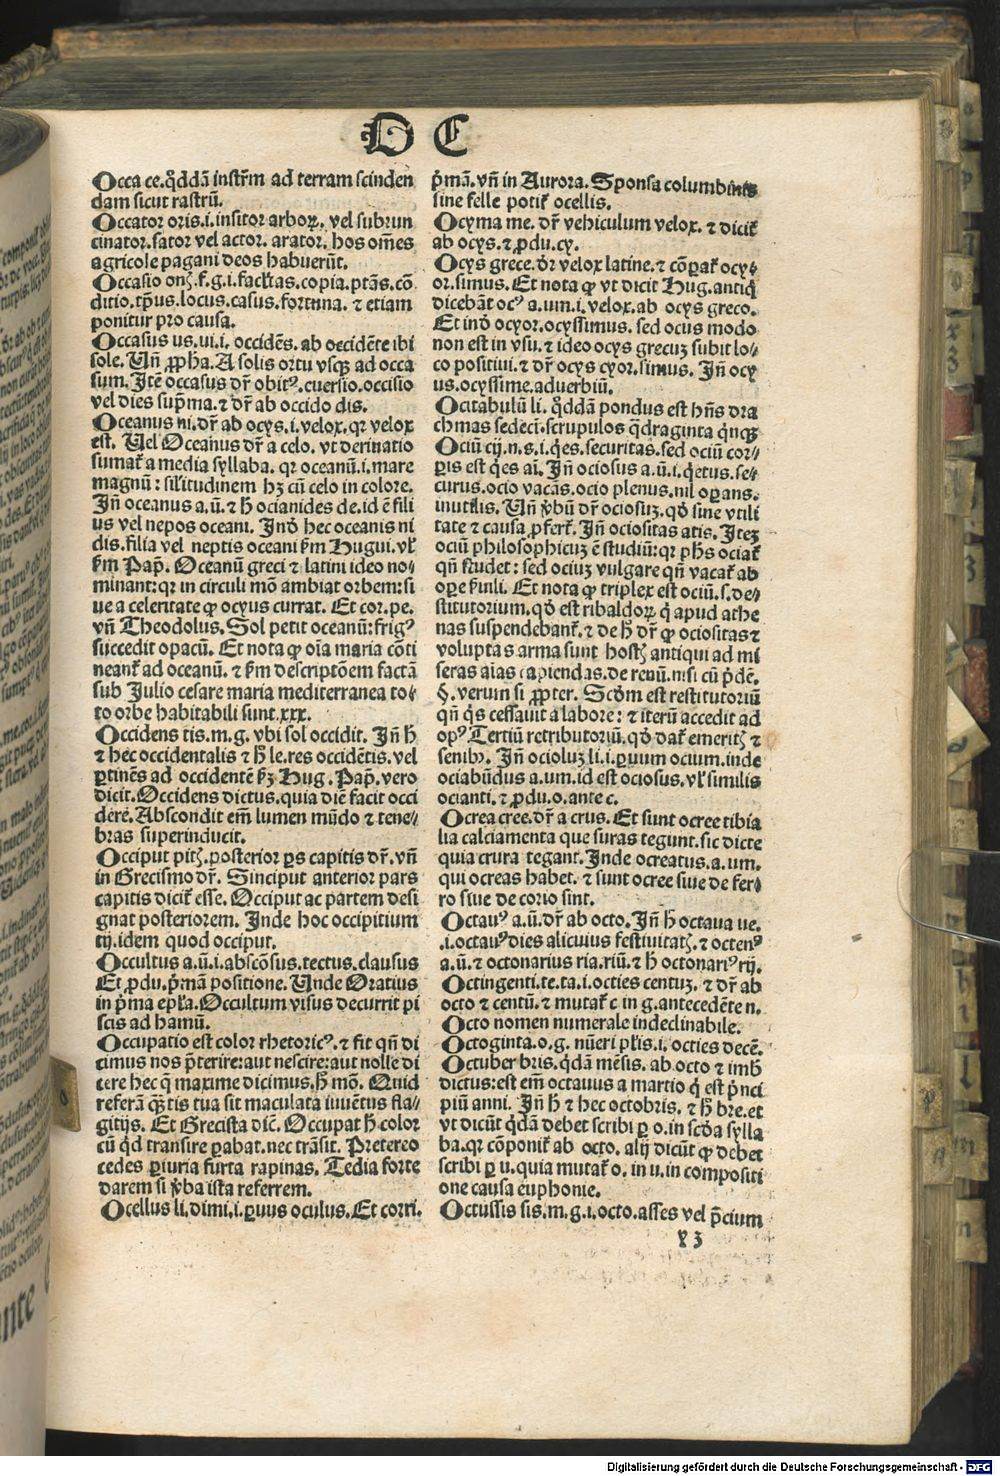 O C
Occa ce. q̇ddā instr̄m ad terram scinden
dam sicut rastrū.
Occator oris. i. insitor arboꝝ. vel subrun
cinator. sator vel actor. arator. hos om̄es
agricole pagani deos habuerūt.
Occasio onꝭ. f. g. i. facl̄tas. copia. ptās. cō
ditio. tp̄us. locus. casus. fortuna. ⁊ etiam
ponitur pro causa.
Occasus us. ui. i. occidēs. ab occidēte ibi
sole. Uñ ꝓpha. A solis ortu vsqꝫ ad occa
sum. Itē occasus dr̄ obitꝰ. euersio. occisio
vel dies sup̄ma. ⁊ dr̄ ab occido dis.
Oceanus ni. dr̄ ab ocys. i. velox. qr velox
est. Uel Oceanus dr̄ a celo. vt deriuatio
sumat̄ a media syllaba. qr oceanū. i. mare
magnū: sil̄itudinem hꝫ cū celo in colore.
Iñ oceanus a. ū. ⁊ h̄ ocianides de. id ē fili
us vel nepos oceani. Inď hec oceanis ni
dis. filia vel neptis oceani ẜm Hugui. vl̄
ẜm Pap̄. Oceanū greci ⁊ latini ideo no⸗
minant: qr in circuli mō ambiat orbem: si
ue a celeritate ꝙ ocyus currat. Et cor. pe.
vñ Theodolus. Sol petit oceanū: frigꝰ
succedit opacū. Et nota ꝙ oīa maria cōti
neant̄ ad oceanū. ⁊ ẜm descriptōem factā
sub Julio cesare maria mediterranea to⸗
to orbe habitabili sunt. xxx.
Occidens tis. m. g. vbi sol occidit. Iñ h̄
⁊ hec occidentalis ⁊ h̄ le. res occidētis. vel
ꝑtinēs ad occidentē ẜꝫ Hug. Pap̄. vero
dicit. Occidens dictus. quia diē facit occi
dere. Abscondit em̄ lumen mūdo ⁊ tene⸗
bras superinducit.
Occiput pitꝭ. posterior ꝑs capitis dr̄. vñ
in Grecismo dr̄. Sinciput anterior pars
capitis dicit̄ esse. Occiput ac partem desi
gnat posteriorem. Inde hoc occipitium
tij. idem quod occiput.
Occultus a. ū. i. abscōsus. tectus. clausus
Et ꝓdu. p̄mā positione. Unde Oratius
in p̄ma epl̄a. Occultum visus decurrit pi
scis ad hamū.
Occupatio est color rhetoricꝰ. ⁊ fit qñ di
cimus nos p̄terire: aut nescire: aut nolle di
cere hec q̄ maxime dicimus. h̄ mō. Quid
referā qꝫ tis tua sit maculata iuuētus fla⸗
gitijs. Et Grecista dic̄. Occupat h̄ color
cū q̇d transire ꝑabat. nec trāsit. Pretereo
cedes ꝑiuria furta rapinas. Tedia forte
darem si v̇ba ista referrem.
Ocellus li. dimi. i. ꝑuus oculus. Et corri.
p̄mā. vñ in Aurora. Sponsa columbinis
sine felle potit̄ ocellis.
Ocyma me. dr̄ vehiculum velox. ⁊ dicit̄
ab ocys. ⁊ ꝓdu. cy.
Ocys grece. dr̄ velox latine. ⁊ cōꝑat̄ ocy⸗
or. simus. Et nota ꝙ vt dicit Hug. antiq̇
dicebāt ocꝰ a. um. i. velox. ab ocys greco.
Et inď ocyor. ocyssimus. sed ocus modo
non est in vsu. ⁊ ideo ocys grecuꝫ subit lo⸗
co positiui. ⁊ dr̄ ocys cyor. simus. Iñ ocy
us. ocyssime. aduerbiū.
Ocitabulū li. q̇ddā pondus est hñs dra
chmas sedeci. scrupulos q̄draginta q̇nqꝫ
Ociū cij. n. s. i. q̇es. securitas. sed ociū cor⸗
ꝑis est q̇es aī. Iñ ociosus a. ū. i. q̇etus. se⸗
curus. ocio vacās. ocio plenus. nil oꝑans.
inutilis. Uñ v̇bū dr̄ ociosuꝫ. qď sine vtili
tate ⁊ causa ꝓfert̄. Iñ ociositas atis. Iteꝫ
ociū philosophicuꝫ ē studiū: qr ph̄s ociat̄
qñ studet: sed ociuꝫ vulgare qñ vacat̄ ab
oꝑe ẜuili. Et nota ꝙ triplex est ociū. s. de⸗
stitutorium. qď est ribaldoꝝ q̇ apud athe
nas suspendebant̄. ⁊ de h̄ dr̄ ꝙ ociositas ⁊
voluptas arma sunt hostꝭ antiqui ad mi
seras aīas capiendas. de renū. nisi cū p̄dē.
§. verum si ꝓpter. Scďm est restitutoriū
qñ q̇s cessauit a labore: ⁊ iterū accedit ad
opꝰ. Tertiū retributoriū. qď dat̄ emeritꝭ ⁊
senibꝫ. Iñ ocioluꝫ li. i. ꝑuum ocium. inde
ociabūdus a. um. id est ociosus. vl̄ similis
ocianti. ⁊ ꝓdu. o. ante c.
Ocrea cree. dr̄ a crus. Et sunt ocree tibia
lia calciamenta que suras tegunt. sic dicte
quia crura tegant. Inde ocreatus. a. um.
qui ocreas habet. ⁊ sunt ocree siue de fer⸗
ro siue de corio sint.
Octauꝰ a. ū. dr̄ ab octo. Iñ h̄ octaua ue.
i. octauꝰ dies alicuius festiuitatꝭ. ⁊ octenꝰ
a. ū. ⁊ octonarius ria. riū. ⁊ h̄ octonariꝰ rij.
Octingenti. te. ta. i. octies centuꝫ. ⁊ dr̄ ab
octo ⁊ centū. ⁊ mutat̄ c in g. antecedēte n.
Octo nomen numerale indeclinabile.
Octoginta. o. g. nūeri pl̄is. i. octies decē.
Octuber bris. q̇dā mēsis. ab octo ⁊ imb̄
dictus: est em̄ octauus a martio q̇ est p̄nci
piū anni. Iñ h̄ ⁊ hec octobris. ⁊ h̄ bre. et
vt dicūt q̇dā debet scribi ꝑ o. in scďa sylla
ba. qr cōponit̄ ab octo. alij dicūt ꝙ debet
scribi ꝑ u. quia mutat̄ o. in u. in compositi
one causa euphonie.
Octussis sis. m. g. i. octo. asses vel p̄cium
Digitalisierung gefördert durch die Deutsche Forschungsgemeinschaft - DFG